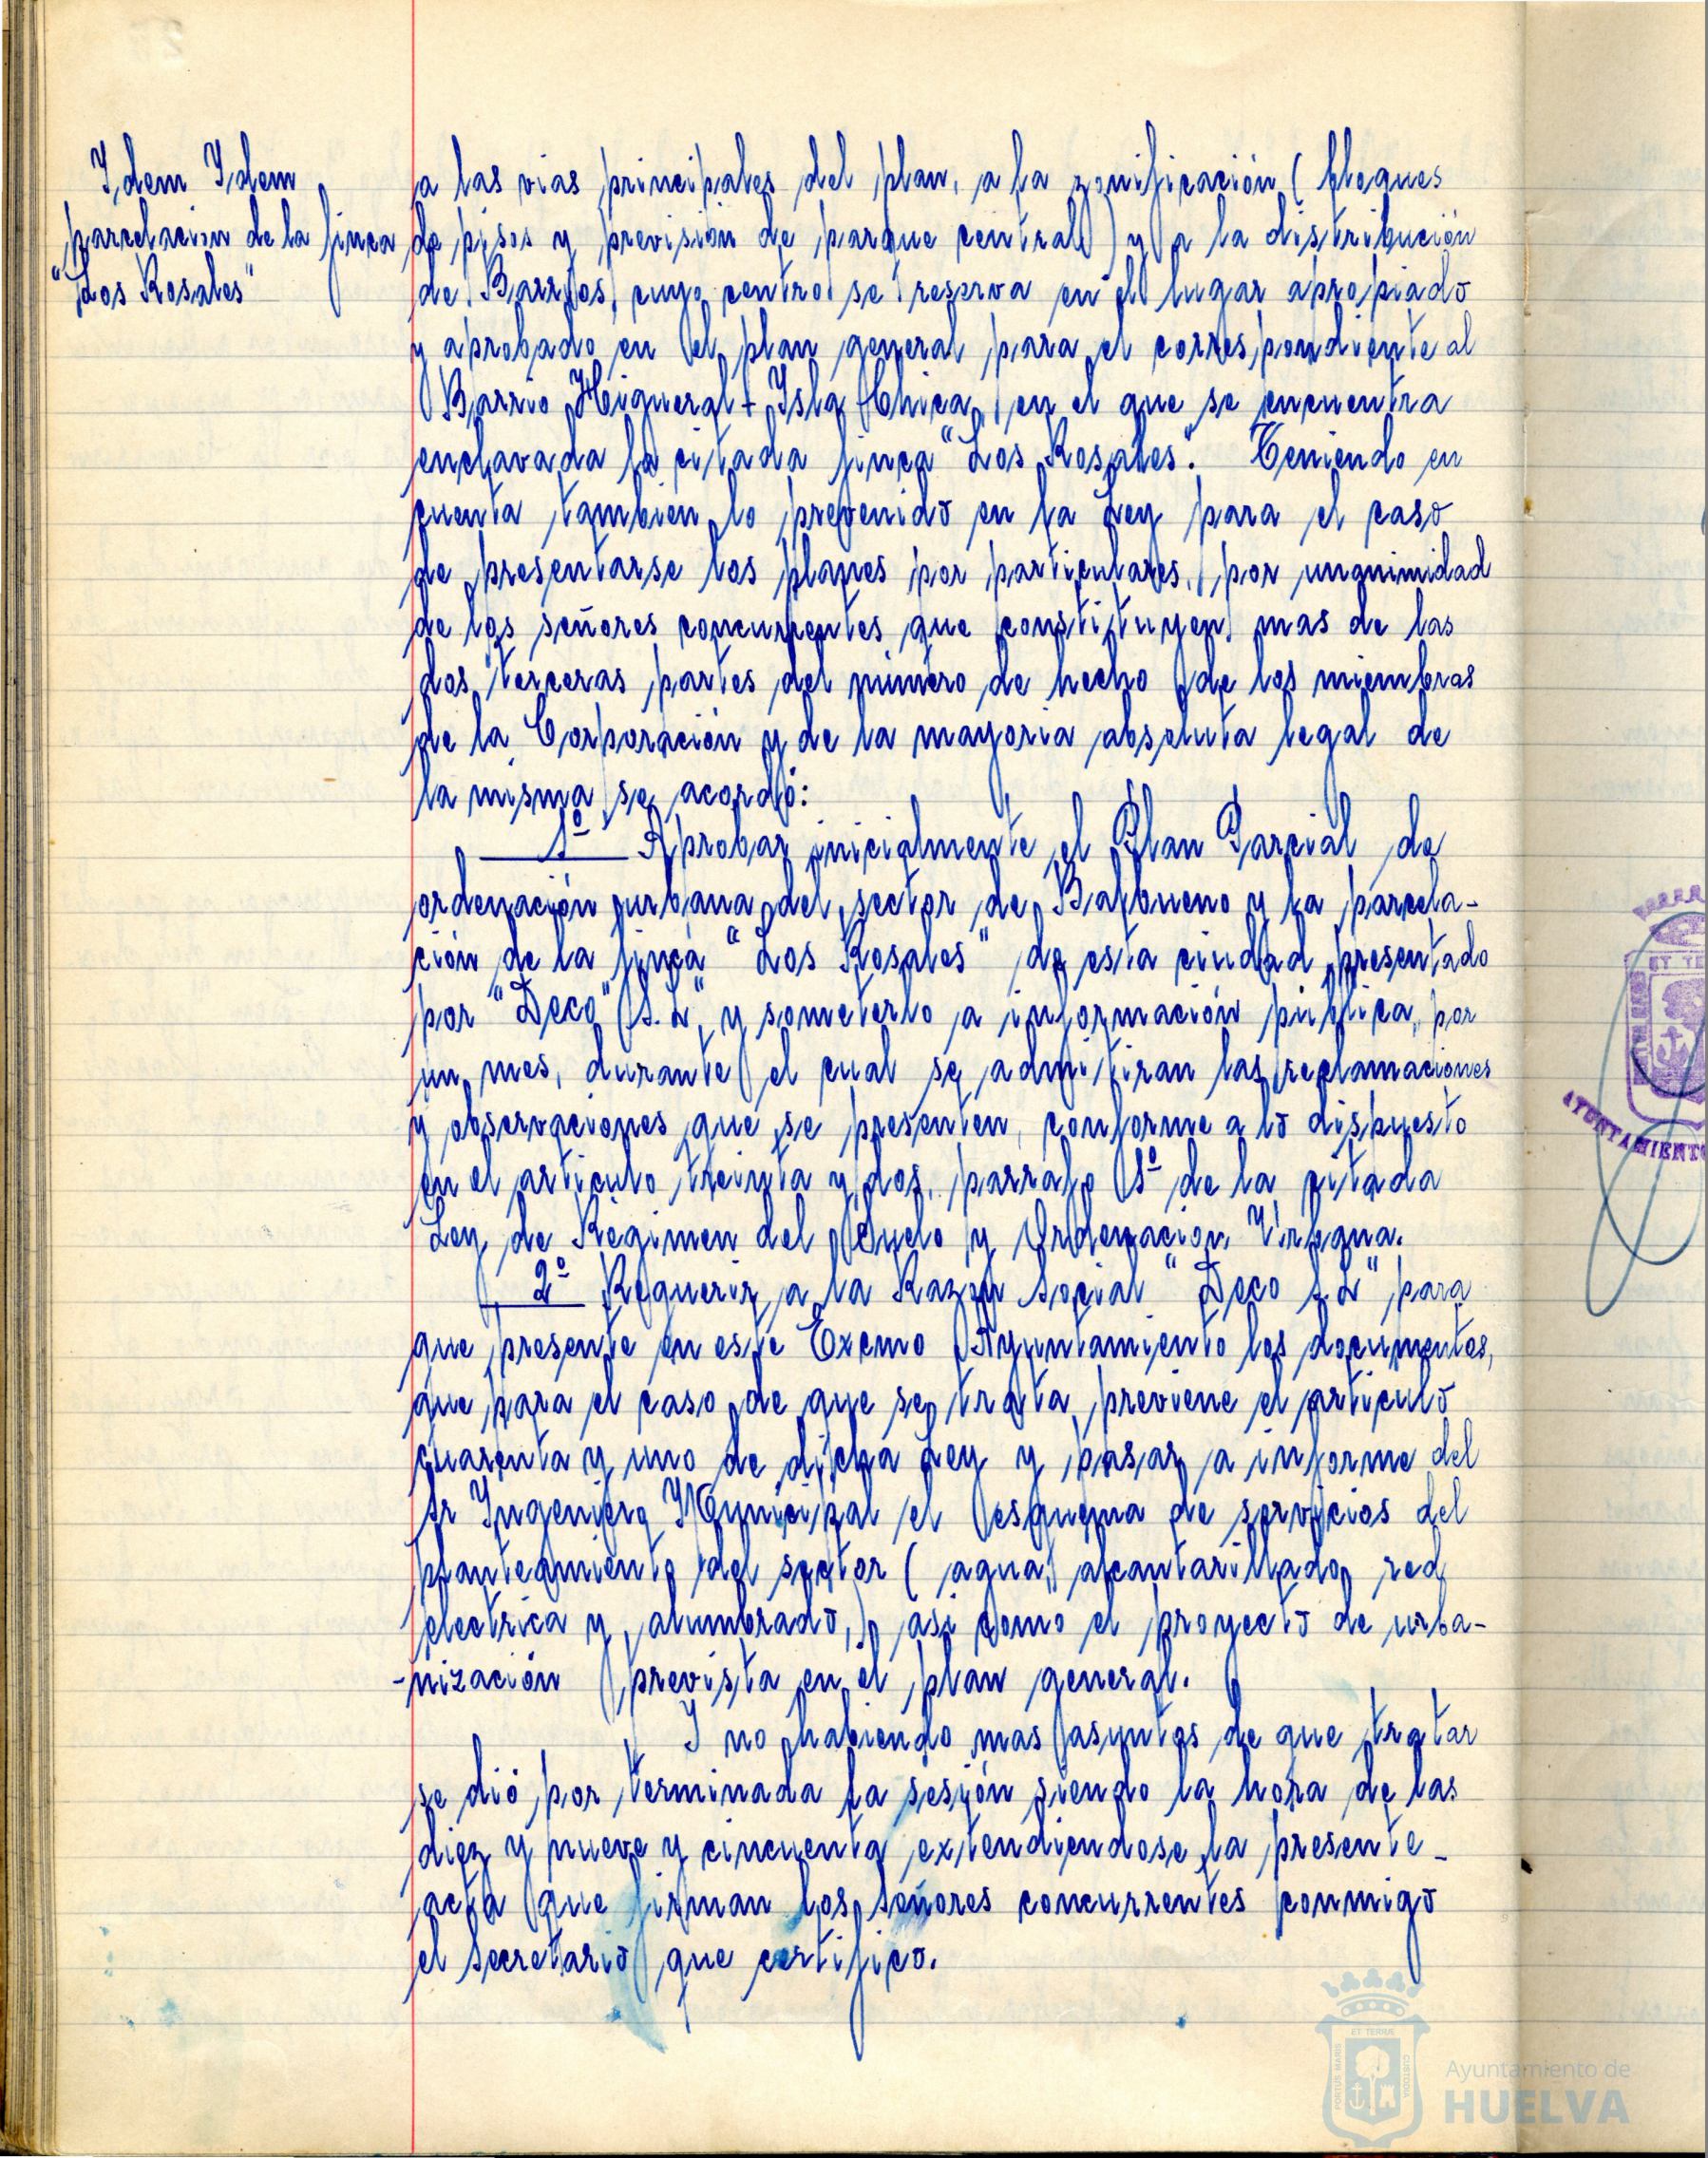 Idem Idem
parcelacion de la finca
"Los Rosales"
a las vias principales del plan, a la zonificación (bloques
de pisos y previsión de parque central) y a la distribución
de Barrios, cuyo centro se reserva en el lugar apropiado
y aprobado en el plan general para el correspondiente al
Barrio Higueral - Isla Chica, en el que se encuentra
enclavada la citada finca "Los Rosales". Teniendo en
cuenta tambien lo prevenido en la Ley para el caso
de presentarse los planes por particulares, por unanimidad
de los señores concurrentes que constituyen mas de las
dos terceras partes del número de hecho de los miembros
de la Corporación y de la mayoria absoluta legal de
la misma se acordó:
1º Aprobar inicialmente el Plan Parcial de
ordenación urbana del sector de Balbueno y la parcela-
ción de la finca "Los Rosales" de esta ciudad presentado
por "Deco" S.L", y someterlo a información pública, por
un mes, durante el cual se admitiran las reclamaciones
y observaciones que se presenten, conforme a lo dispuesto
en el articulo treinta y dos, parrafo 1º de la citada
Ley de Regimen del Suelo y Ordenacion Urbana.
2º Requerir a la Razón Social "Deco S.L" para
que presente en este Excmo Ayuntamiento los documentos,
que para el caso de que se trata, previene el articulo
cuarenta y uno de dicha Ley y pasar a informe del
Sr Ingeniero Municipal el esquema de servicios del
planteamiento del sector (agua, alcantarillado, red
electrica y alumbrado,) asi como el proyecto de urba-
-nización prevista en el plan general.
Y no habiendo mas asuntos de que tratar
se dió por terminada la sesión siendo la hora de las
diez y nueve y cincuenta extendiendose la presente
acta que firman los señores concurrentes conmigo
el Secretario que certifico.
ET TE
AYUNTAMIENTO
PORTUS MARIS
ET TERRE
CUSTODIA
Ayuntamiento de
HUELVA